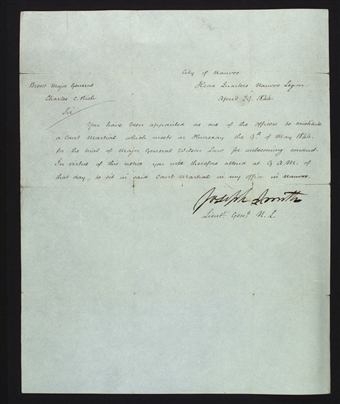 City of Nauvoo
Head Quarters Nauvoo Legion
April 29. 1844.
Brevt Major General
Charles C. Rich
Sir
You have been appointed as one of the officers to constitute
a Court Martial, which meets on Thursday the 9th of May 1844.
for the trial of Major General Wilson Law for unbecoming conduct.
In virtue of this notice you will therefore attend at 9 A.M. of
that day, to sit in said Court Martial in my office in Nauvoo.
Joseph Smith
Lieut. Genl N. L.